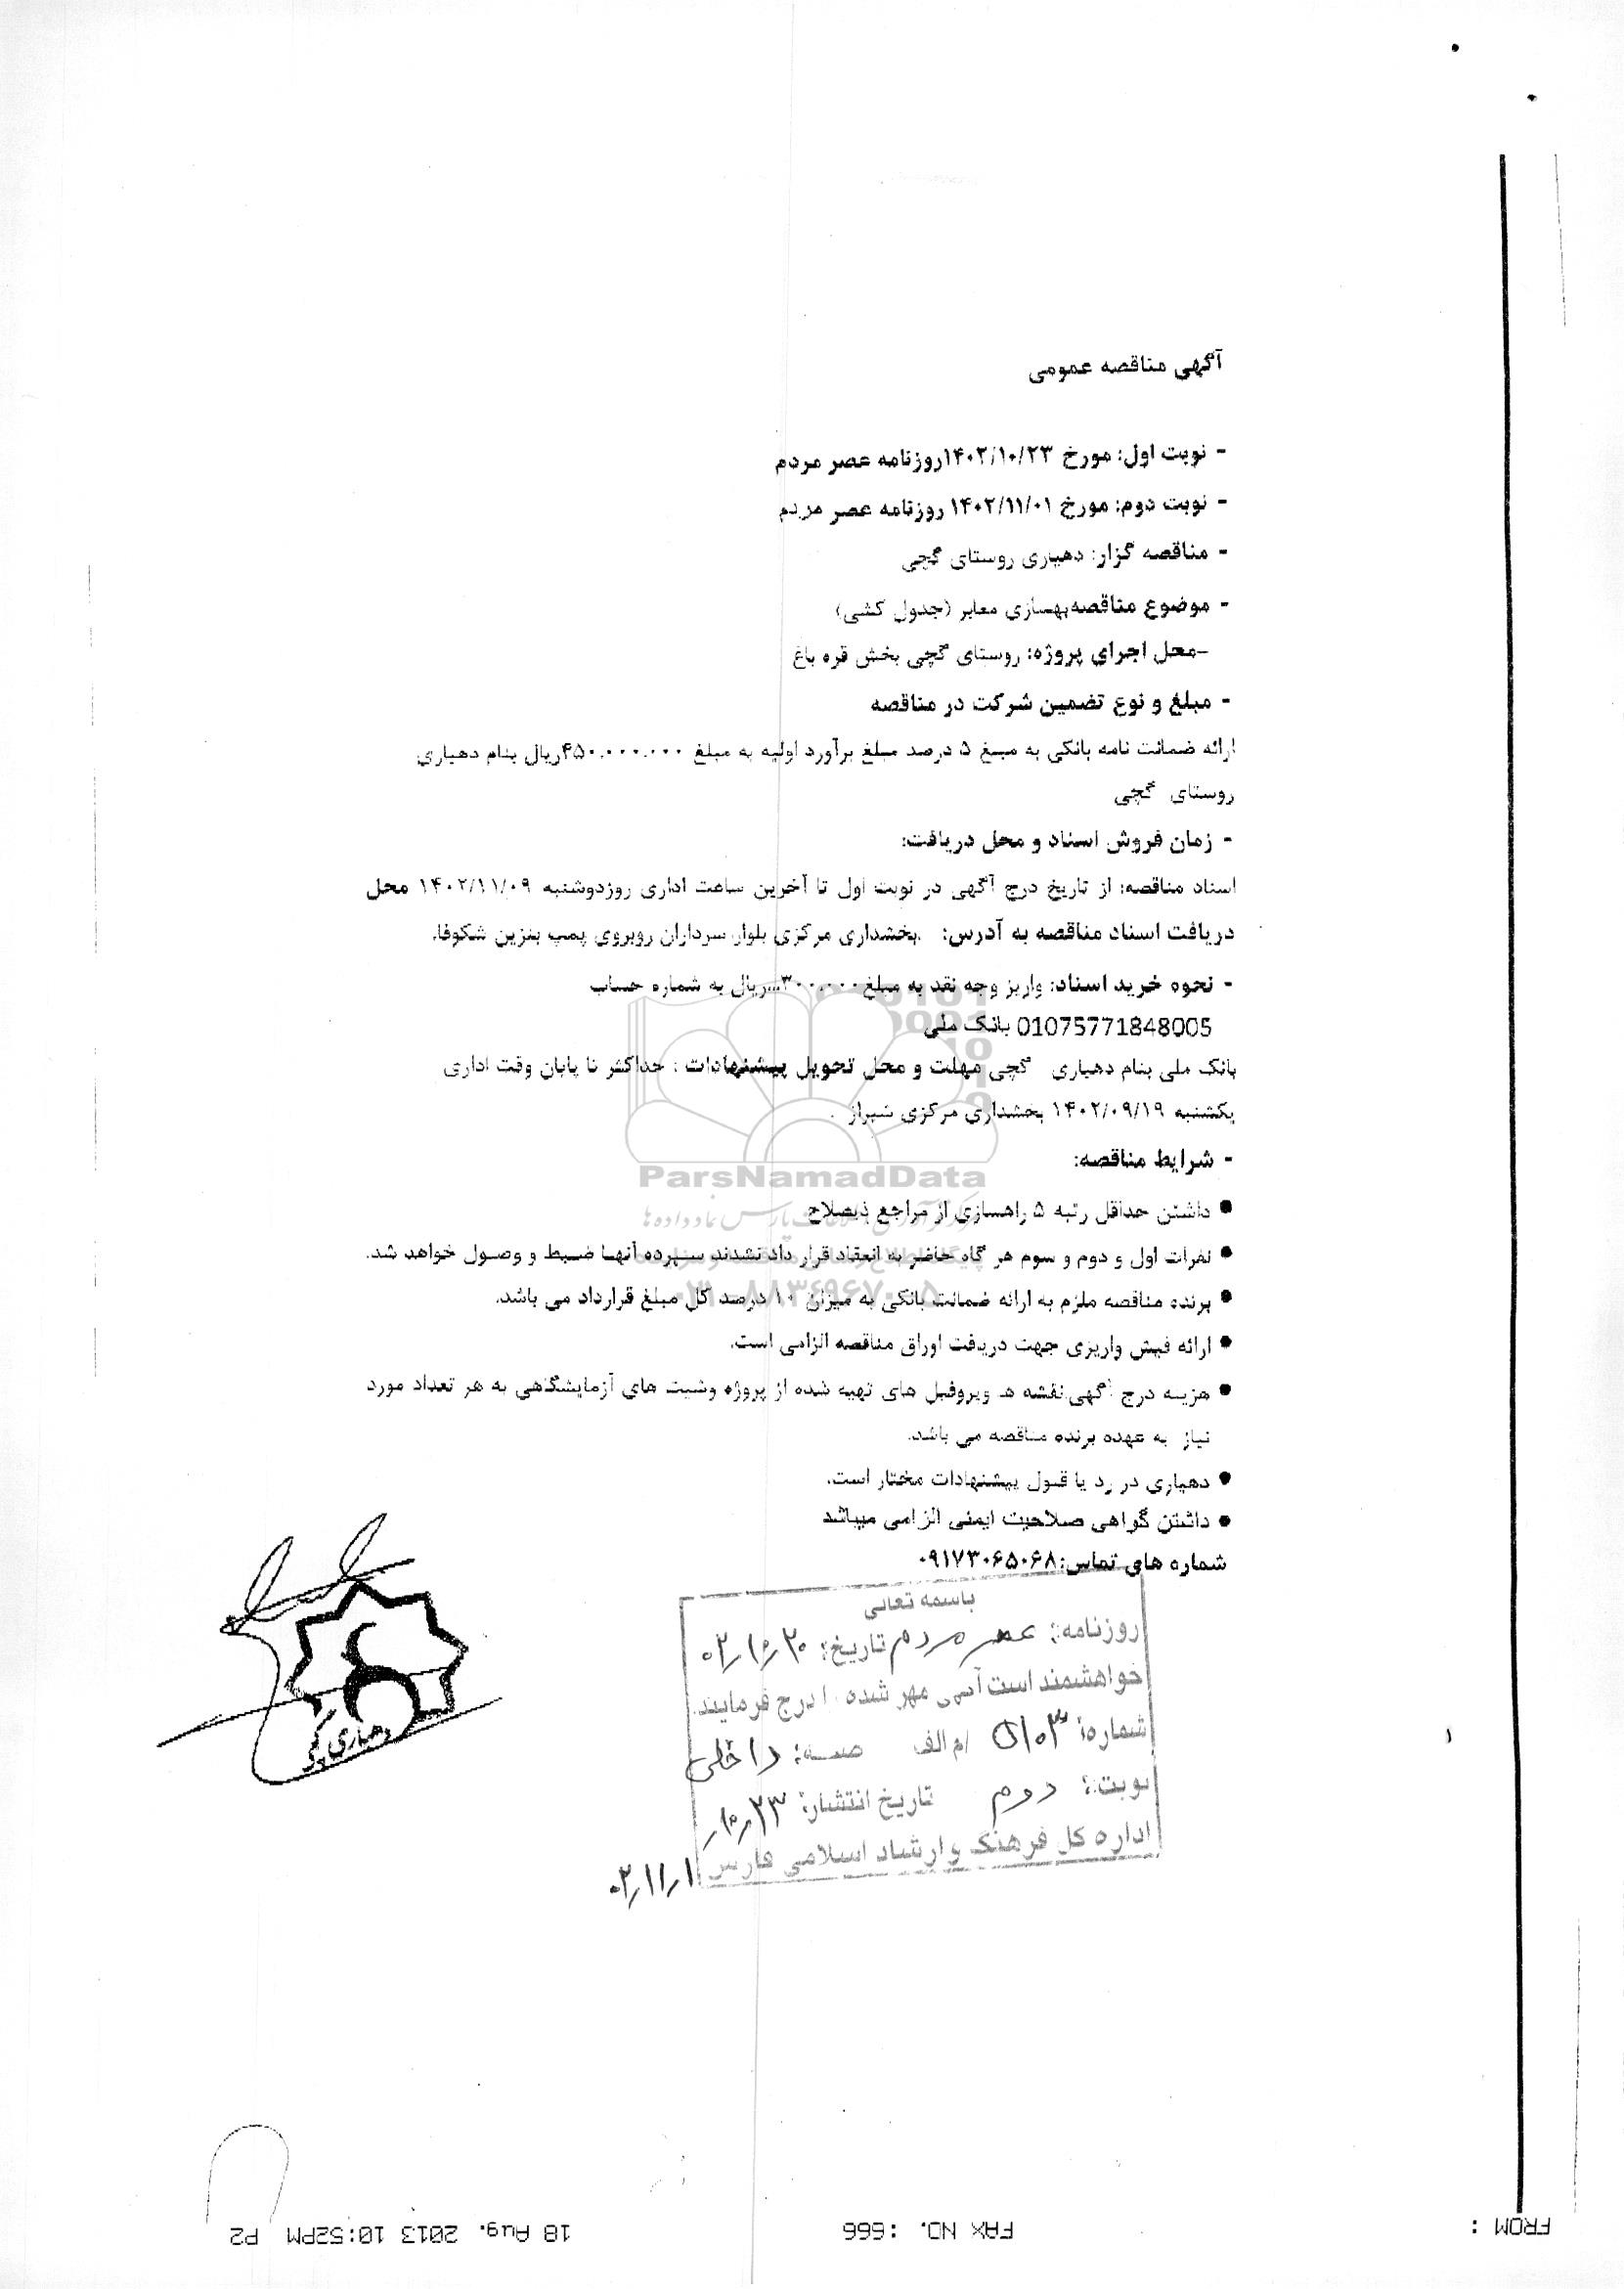 آگهی مناقصه عمومی
- نوبت اول: مورخ ۱۴۰۲/۱۰/۲۳روزنامه عصر مردم
- نوبت دوم: مورخ ۱۴۰۲/۱۱/۰۱ روزنامه عصر مردم
- مناقصه گزار: دهیاری روستای گچی
- موضوع مناقصه بهسازی معابر (جدول کشی)
-محل اجرای پروژه: روستای گچی بخش قره باغ
- مبلغ و نوع تضمین شرکت در مناقصه
ارائه ضمانت نامه بانکی به مبلغ ۵ درصد مبلغ برآورد اولیه به مبلغ ۴۵۰.۰۰۰.۰۰۰ریال بنام دهیاری
روستای گچی
- زمان فروش اسناد و محل دریافت:
اسناد مناقصه: از تاریخ درج آگهی در نوبت اول تا آخرین ساعت اداری روزدوشنبه ۱۴۰۲/۱۱/۰۹ محل
دریافت اسناد مناقصه به آدرس: بخشداری مرکزی بلوار سرداران روبروی پمپ بنزین شکوفا.
- نحوه خرید اسناد: واریز وجه نقد به مبلغ ریال به شماره حساب
01075771848005 بانک ملی
بانک ملی بنام دهیاری گچی مهلت و محل تحویل پیشنهادات : حداکثر تا پایان وقت اداری
یکشنبه ۱۴۰۲/۰۹/۱۹ بخشداری مرکزی شیراز .
- شرایط مناقصه:
● داشتن حداقل رتبه ۵ راهسازی از مراجع ذیصلاح
● نفرات اول و دوم و سوم هر گاه حاضر به انعقاد قرار داد نشدند سپرده آنها ضبط و وصول خواهد شد.
● برنده مناقصه ملزم به ارائه ضمانت بانکی به میزان ۱۰ درصد کل مبلغ قرارداد می باشد.
● ارائه فیش واریزی جهت دریافت اوراق مناقصه الزامی است.
● هزینه درج آگهی،نقشه ها وپروفیل های تهیه شده از پروژه وشیت های آزمایشگاهی به هر تعداد مورد
نیاز به عهده برنده مناقصه می باشد.
● دهیاری در رد یا قبول پیشنهادات مختار است.
● داشتن گواهی صلاحیت ایمنی الزامی میباشد
شماره های تماس:۰۹۱۷۳۰۶۵۰۶۸
ParsNamadData
۰۲۱-۸۸۳۴۹۶۷۰-۵
باسمه تعالی
روزنامه: عصر مردم تاریخ: ۰۲/۱۰/۲۰
خواهشمند است آگهی مهر شده را درج فرمایید.
شماره: ۵۱۰۳ /م الف صفحه: داخلی
نوبت: دوم تاریخ انتشار: ۱۰/۲۳
اداره کل فرهنگ و ارشاد اسلامی فارس
۰۲/۱۱/۱
دهیاری گچی
FROM :
FAX NO. :666
18 Aug. 2013 10:52PM P2